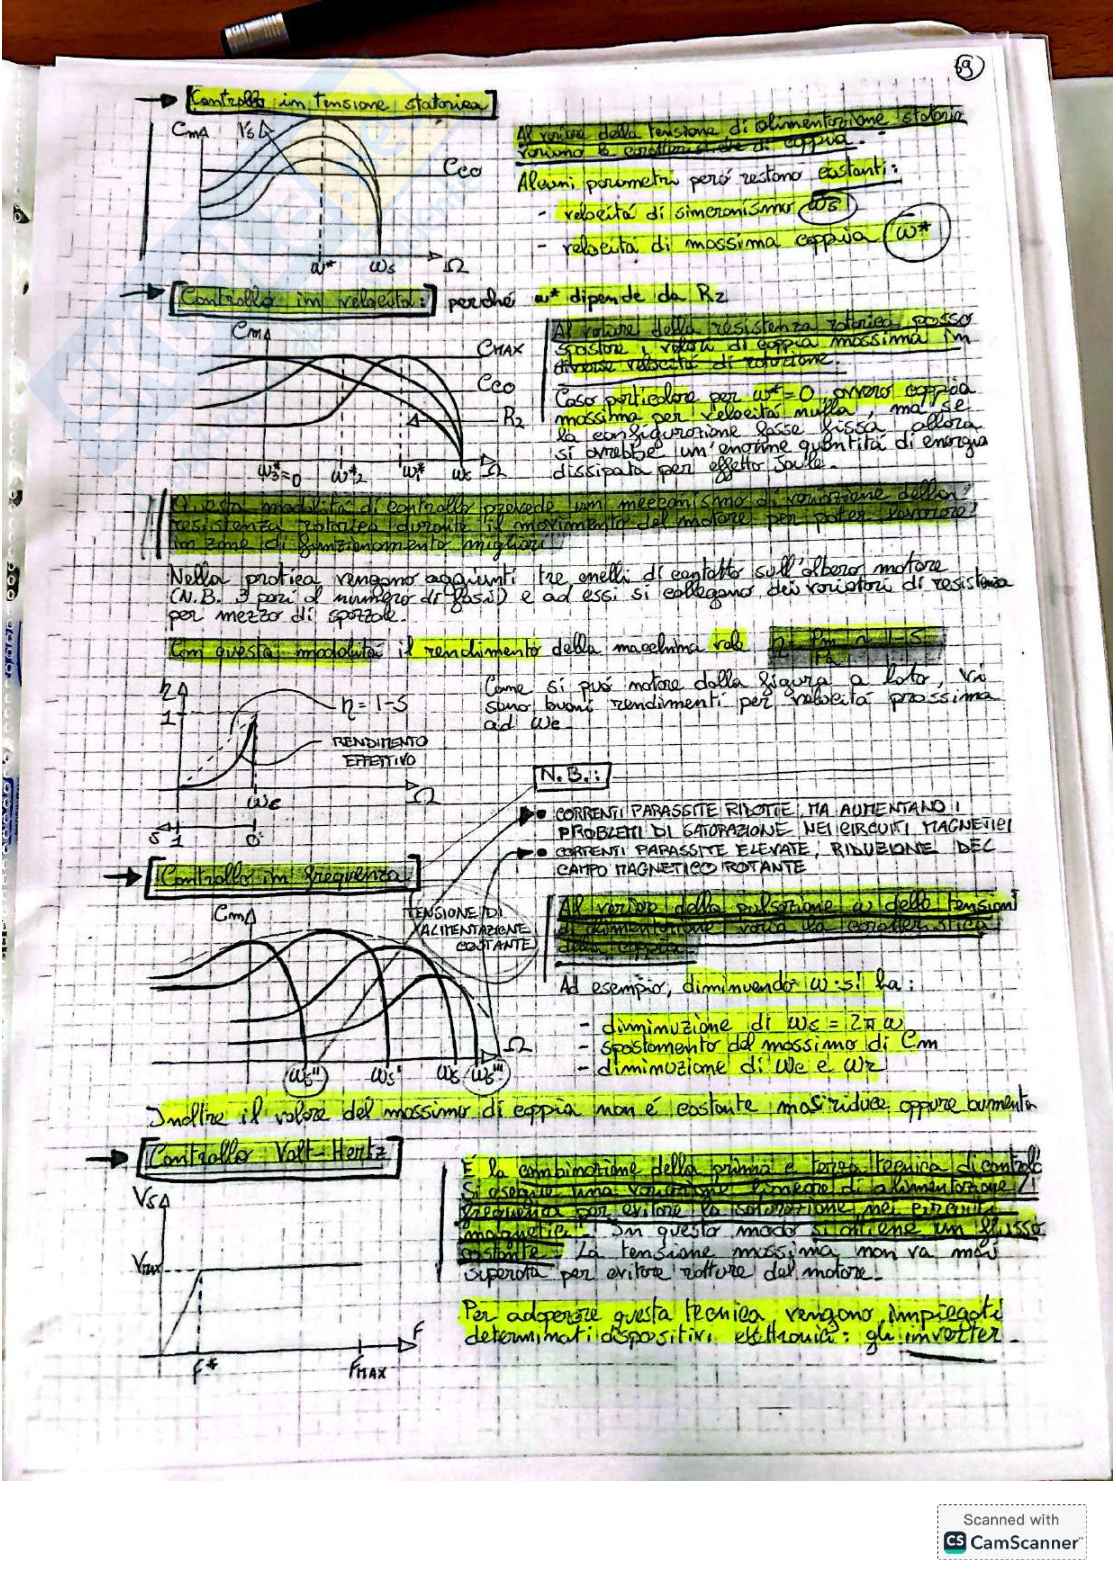 39
Controllo in tensione statorica
Cm Vs
Cco
ω* ωs Ω
Al variare della tensione di alimentazione statoria
variano le caratteristiche di coppia.
Alcuni parametri peró restano costanti:
- velocitá di sincronismo ωs
- velocita di massima coppia ω*
Controllo in velocita: perché ω* dipende da R2
Cm
CMAX
Cco
R2
ω*3=0 ω*2 ω*1 ωs Ω
Al variare della resistenza rotorica posso
spostare i valori di coppia massima in
diverse velocitá di rotazione.
Caso particolare per ω*=0, ovvero coppia
massima per velocitá nulla, ma se
la configurazione fosse fissa allora
si avrebbe un'enorme quantitá di energia
dissipata per effetto Joule.
Questa modalitá di controllo prevede un meccanismo di variazione della
resistenza rotorica durante il movimento del motore per poter lavorare
in zone di funzionamento migliori.
Nella pratica vengono aggiunti tre anelli di contatto sull'albero motore
(N.B. 3 pari al numero di fasi) e ad essi si collegano dei variatori di resistenza
per mezzo di spazzole.
Con questa modalitá il rendimento della macchina vale η= Pm/Pa ≈ 1-S
η
1
η=1-S
RENDIMENTO
EFFETTIVO
ωc Ω
S 1 0
Come si puó notare dalla figura a lato, vi
sono buoni rendimenti per velocitá prossima
ad ωc.
N.B.:
• CORRENTI PARASSITE RIDOTTE, MA AUMENTANO I
PROBLEMI DI SATURAZIONE NEI CIRCUITI MAGNETICI
• CORRENTI PARASSITE ELEVATE, RIDUZIONE DEL
CAMPO MAGNETICO ROTANTE
Controllo in frequenza
Cm
TENSIONE DI
ALIMENTAZIONE
COSTANTE
ωs'' ωs' ωs ωs''' Ω
Al variare della pulsazione ω delle tensioni
di alimentazione varia la caratteristica
della coppia.
Ad esempio, diminuendo ω si ha:
- diminuzione di ωs = 2π ω
- spostamento del massimo di Cm
- diminuzione di ωc e ωr
Inoltre il valore del massimo di coppia non é costante ma si riduce oppure aumenta
Controllo Volt-Hertz
Vs
Vmax
F* FMAX F
É la combinazione della prima e terza tecnica di controllo
Si esegue una variazione lineare di alimentazione/
frequenza per evitare la saturazione nei circuiti
magnetici. In questo modo si ottiene un flusso
costante. La tensione massima non va mai
superata per evitare rotture del motore.
Per adoperare questa tecnica vengono impiegati
determinati dispositivi elettronici: gli inverter.
Scanned with
CS CamScanner